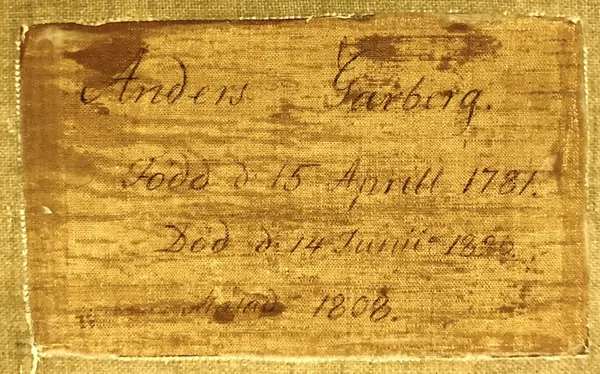 Anders Garberg.
Född d 15 Aprill 1781.
Död d 14 Junii
Malad 1808.